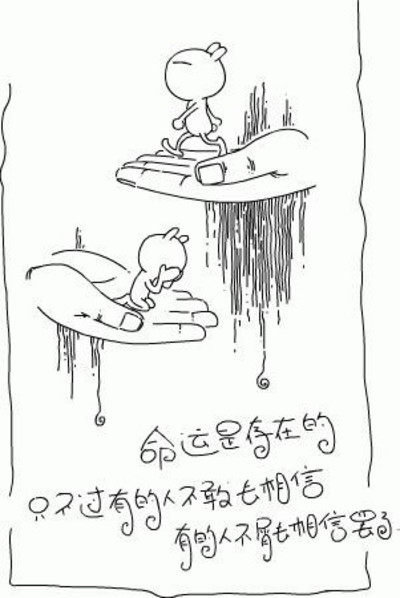 命运是存在的
只不过有的人不敢去相信
有的人不屑去相信罢了